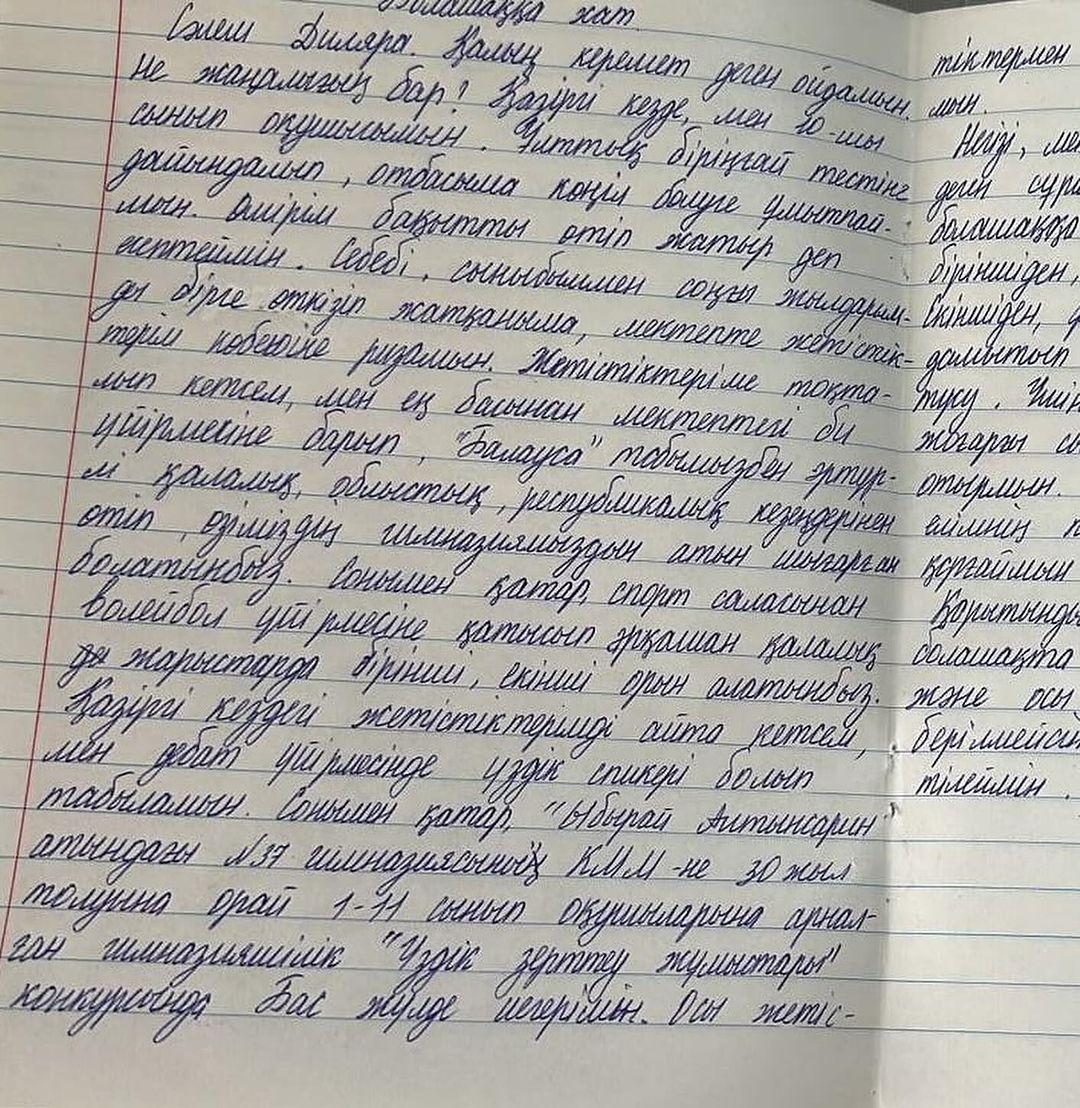 Болашаққа хат
Сәлем Диляра. Қалың керемет деген ойдамын.
Не жаңалығың бар? Қазіргі кезде, мен 10-шы
сынып оқушысымын. Ұлттық бірыңғай тестінге
дайындалып, отбасыма көңіл бөлуге ұмытпай-
мын. Өмірім бақытты өтіп жатыр деп
есептеймін. Себебі, сыныбыммен соңғы жылдарым-
ды бірге өткізіп жатқаныма, мектепте жетістік-
терім көбеюіне ризамын. Жетістіктеріме тоқта-
лып кетсем, мен ең басынан мектептегі би
үйірмесіне барып, "Балауса" тобымызбен әртүр-
лі қалалық, облыстық, республикалық кезеңдерінен
өтіп, өзіміздің гимназиямыздын атын шығарған
болатынбыз. Сонымен қатар, спорт саласынан
волейбол үйірмесіне қатысып әрқашан қалалық
жарыстарда бірінші, екінші орын алатынбыз.
Қазіргі кездегі жетістіктерімді айта кетсем,
мен дебат үйірмесінде үздік спикері болып
табыламын. Сонымен қатар, "Ыбырай Алтынсарин"
атындағы №37 гимназиясының КММ-не 30 жыл
толуына орай 1-11 сынып оқушыларына арнал-
ған гимназияшілік "Үздік зерттеу жұмыстары"
конкурсында Бас жүлде иегерімін. Осы жетіс-
тіктермен
мын.
Негізі, ме
деген сұра
болашақда
біріншіден,
Екіншіден,
дамытып
тұсу. Үшін
жоғарғы
отырмын.
елімнің
қорғаймын
Қорытынды
болашақта
және осы
берілмейсің
тілеймін.